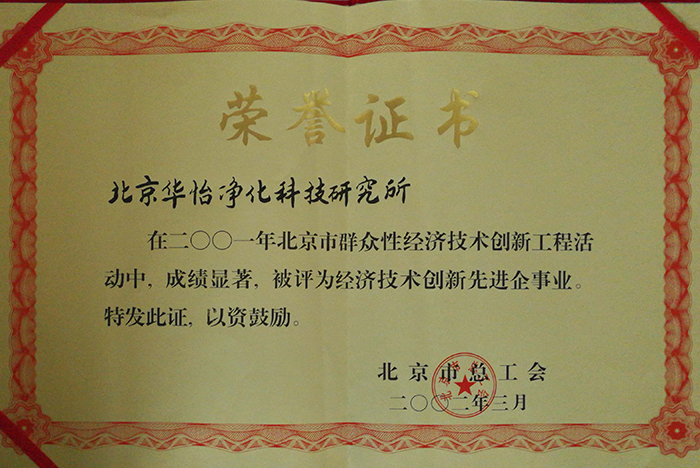 荣誉证书
北京华怡净化科技研究所
在二〇〇一年北京市群众性经济技术创新工程活
动中，成绩显著，被评为经济技术创新先进企事业。
特发此证，以资鼓励。
北京市总工会
二〇〇二年三月